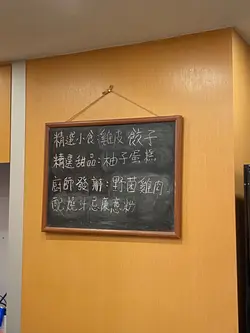 精選小食:雞皮餃子
精選甜品:柚子蛋糕
廚師發辦:野菌雞肉
配燒汁忌廉意粉